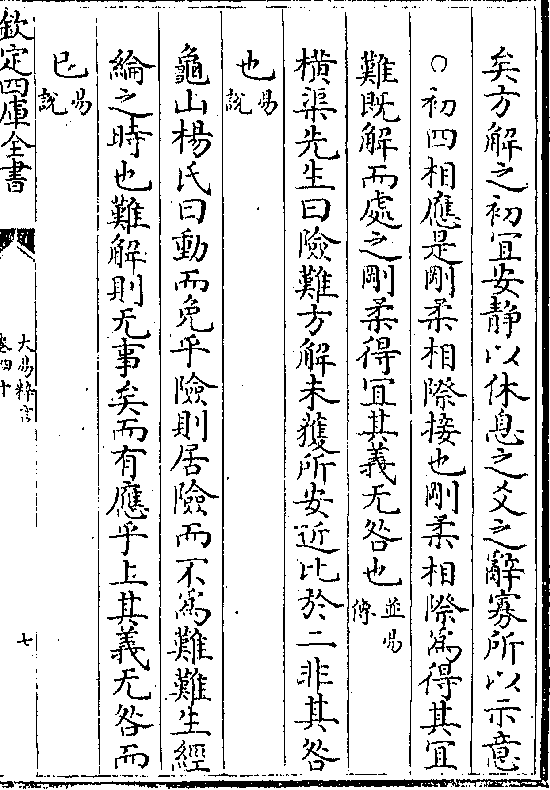 矣方解之初宜安靜以休息之爻之辭寡所以示意
○初四相應是剛柔相際接也剛柔相際為得其宜
難既解而處之剛柔得宜其義无咎也並易傳
橫渠先生曰險難方解未獲所安近比於二非其咎
也易說
龜山楊氏曰動而免乎險則居險而不為難難生經
綸之時也難解則无事矣而有應乎上其義无咎而
已易說
欽定四庫全書
大易粹言
卷四十
七